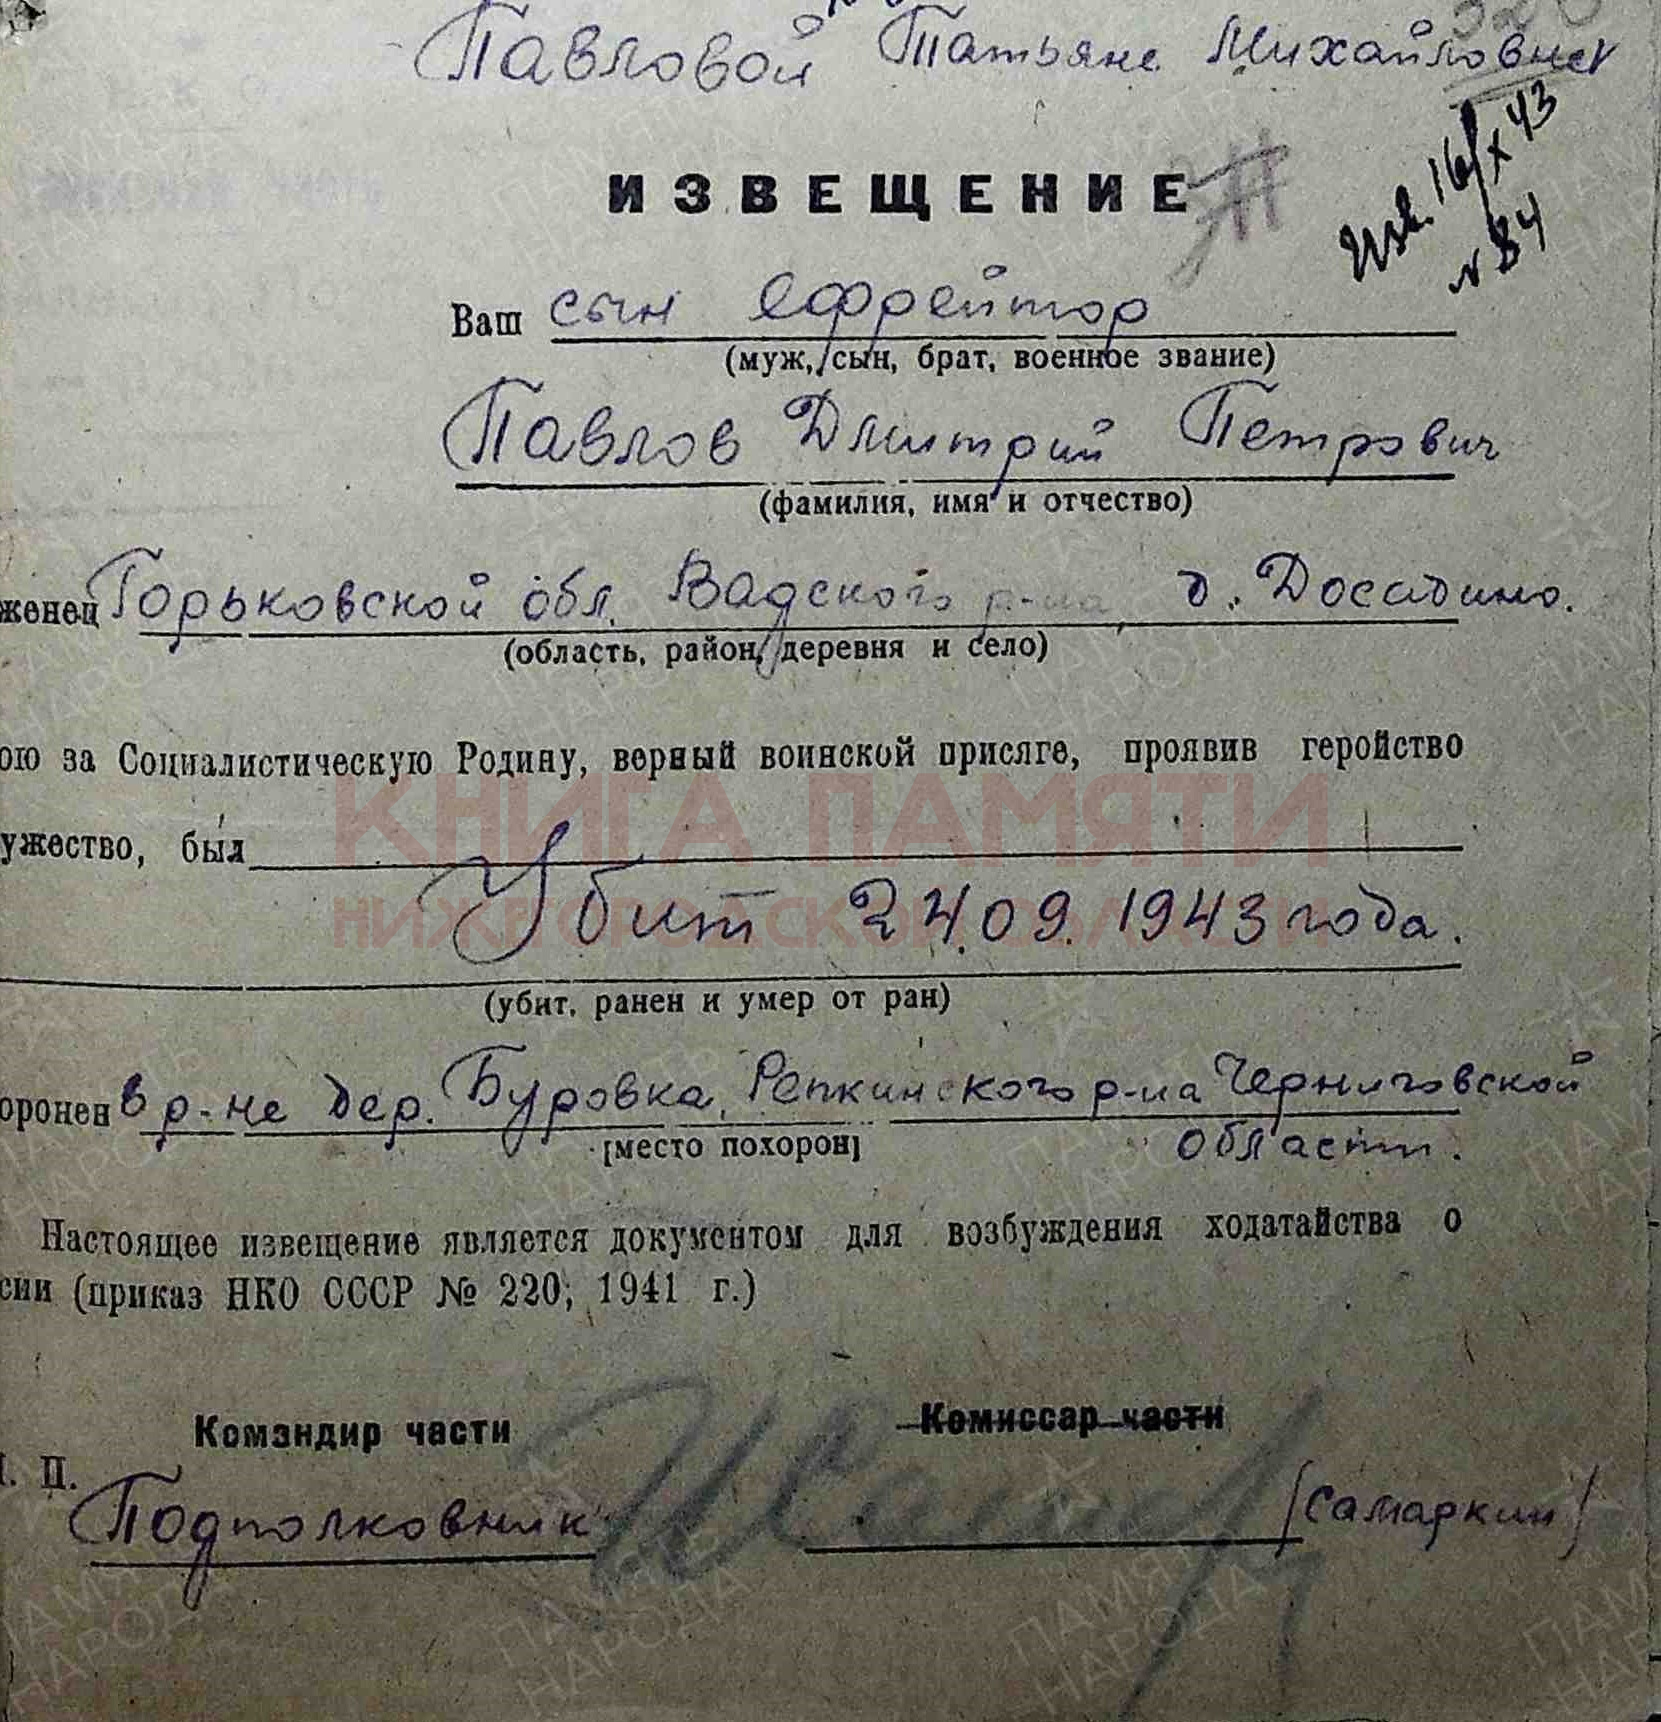 Павловой Татьяне Михайловне
320
Изв. 16/X 43
№ 84
ИЗВЕЩЕНИЕ
Ваш сын ефрейтор
(муж, сын, брат, военное звание)
Павлов Дмитрий Петрович
(фамилия, имя и отчество)
женец Горьковской обл. Вадского р-на, д. Досадино.
(область, район, деревня и село)
ою за Социалистическую Родину, верный воинской присяге, проявив геройство
ужество, был
КНИГА ПАМЯТИ
НИЖЕГОРОДСКОЙ ОБЛАСТИ
Убит 24.09.1943 года.
(убит, ранен и умер от ран)
оронен в р-не дер. Буровка, Репкинского р-на Черниговской
[место похорон] области.
Настоящее извещение является документом для возбуждения ходатайства о
сии (приказ НКО СССР № 220, 1941 г.)
Командир части Комиссар части
П.
Подполковник /Самаркин/
ПАМЯТЬ НАРОДА